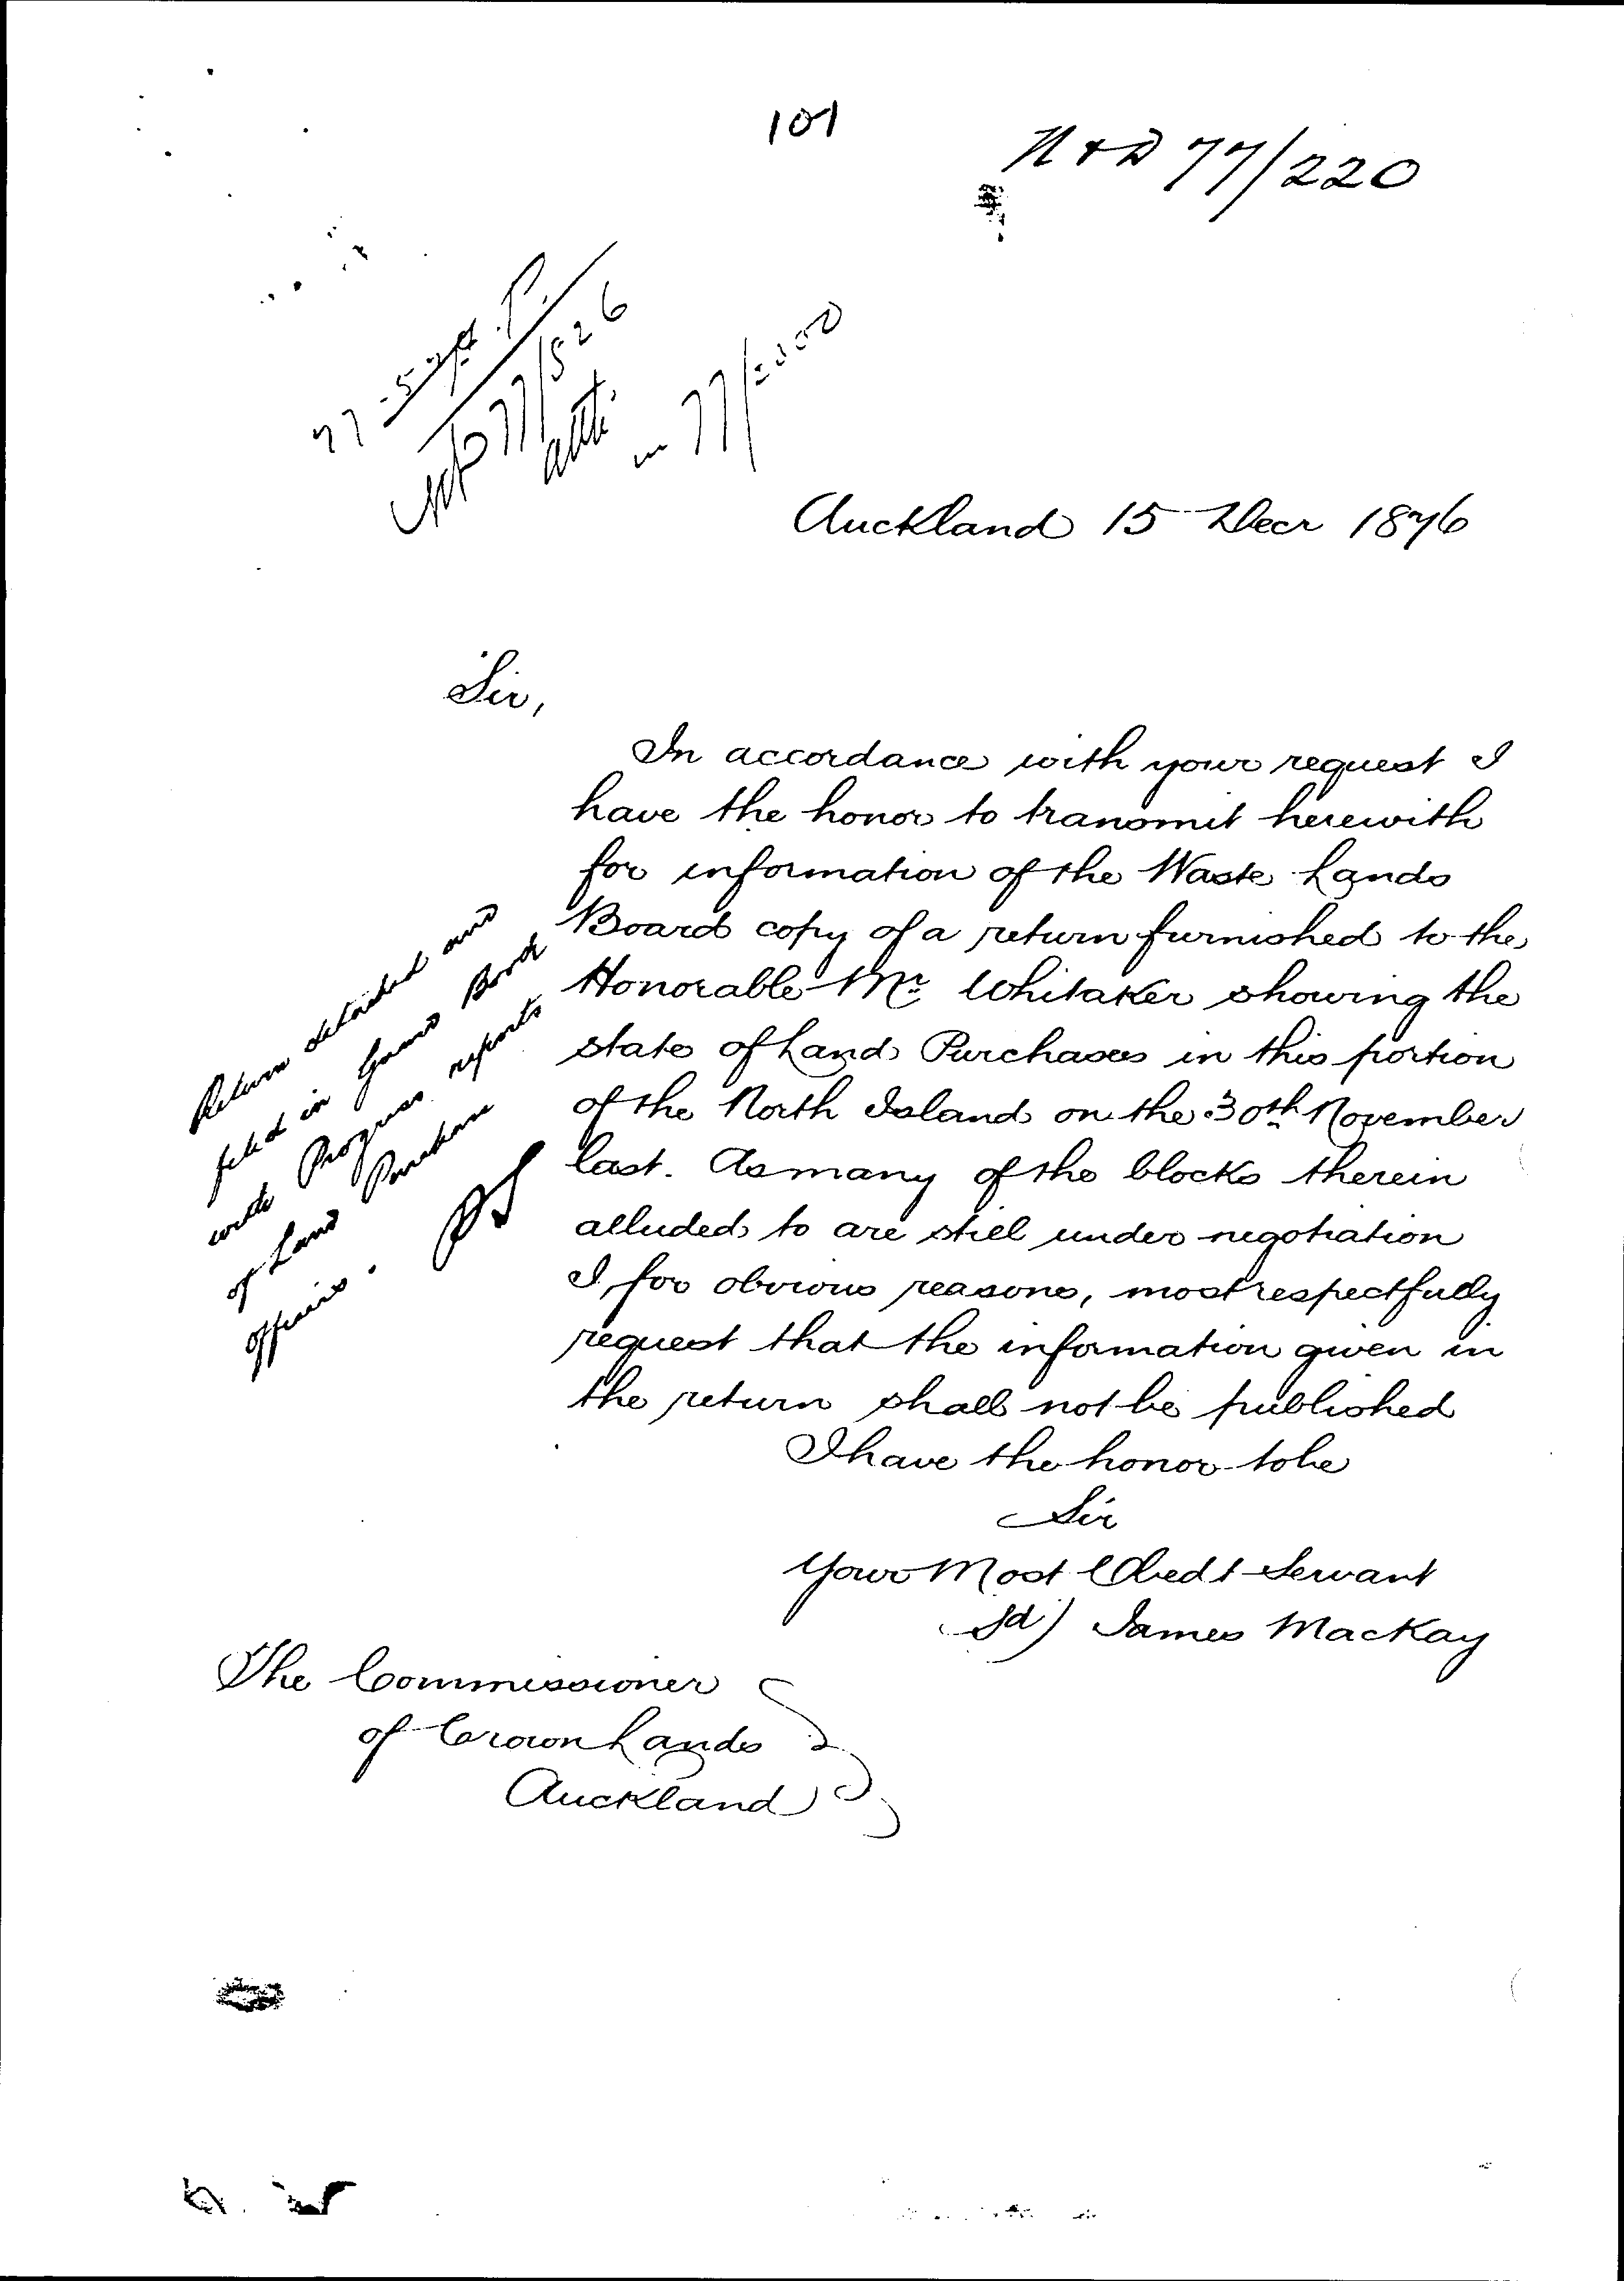 101
N & D 77/220
77/526
in 77/
Auckland 15 Decr 1876
Sir,
In accordance with your request I
have the honor to transmit herewith
for information of the Waste Lands
Board copy of a return furnished to the
Honorable Mr. Whitaker showing the
state of Land Purchases in this portion
of the North Island on the 30th November
last. As many of the blocks therein
alluded to are still under negotiation
I for obvious reasons, most respectfully
request that the information given in
the return shall not be published
I have the honor to be
Sir
Your Most Obedt Servant
Sd) James Mackay
The Commissioner
of Crown Lands
Auckland
Return detached and
filed in Guard Book
with Progress reports
of Land Purchase
Officers.